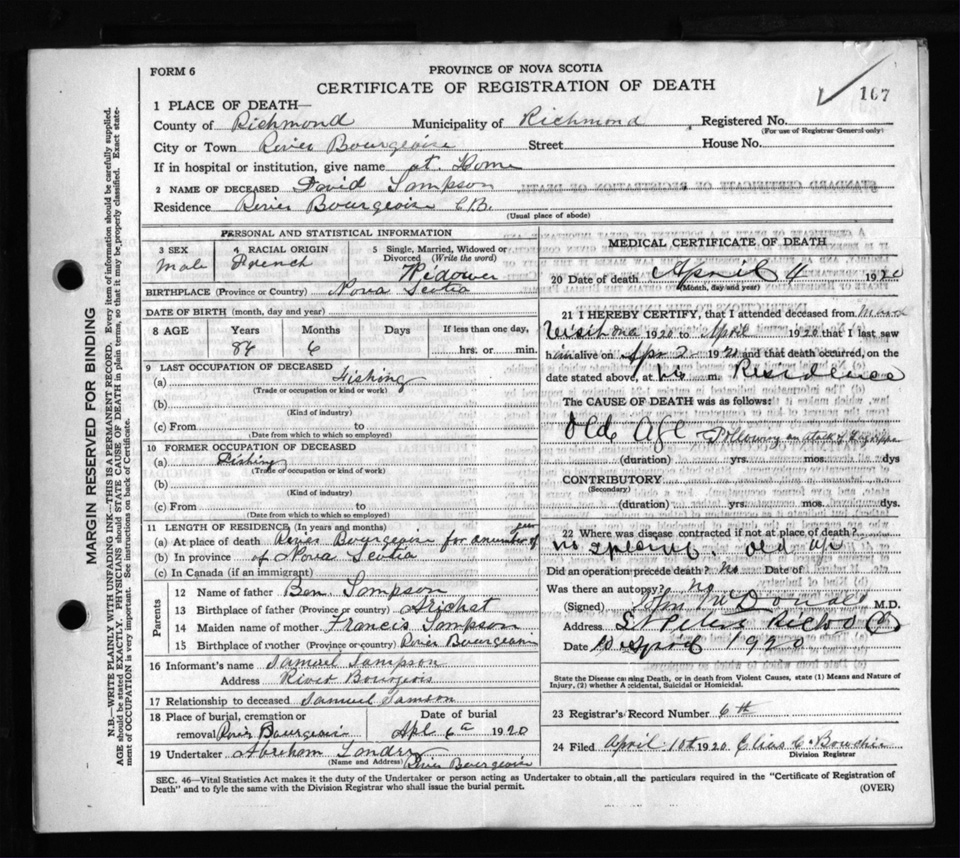 FORM 6
PROVINCE OF NOVA SCOTIA
CERTIFICATE OF REGISTRATION OF DEATH
167
1 PLACE OF DEATH—
County of Richmond Municipality of Richmond Registered No.
(For use of Registrar General only)
City or Town River Bourgeoise Street House No.
If in hospital or institution, give name at Home
2 NAME OF DECEASED David Sampson
Residence River Bourgeoise C.B.
(Usual place of abode)
PERSONAL AND STATISTICAL INFORMATION
3 SEX
Male
4 RACIAL ORIGIN
French
5 Single, Married, Widowed or
Divorced (Write the word)
Widower
BIRTHPLACE (Province or Country) Nova Scotia
DATE OF BIRTH (month, day and year)
8 AGE Years Months Days If less than one day,
6 hrs. or min.
9 LAST OCCUPATION OF DECEASED
(a) Fishing
(Trade or occupation or kind of work)
(b)
(Kind of industry)
(c) From to
(Date from which to which so employed)
10 FORMER OCCUPATION OF DECEASED
(a) Fishing
(Trade or occupation or kind of work)
(b)
(Kind of industry)
(c) From to
(Date from which to which so employed)
11 LENGTH OF RESIDENCE (In years and months)
(a) At place of death River Bourgeoise for a number of
(b) In province of Nova Scotia
(c) In Canada (if an immigrant)
Parents
12 Name of father Ben Sampson
13 Birthplace of father (Province or country) Arichat
14 Maiden name of mother Francis Sampson
15 Birthplace of mother (Province or country) River Bourgeoise
16 Informant's name Samuel Sampson
Address River Bourgeois
17 Relationship to deceased Samuel Samson
18 Place of burial, cremation or Date of burial
removal River Bourgeoise Apl 6th 1920
19 Undertaker Abraham Landry
(Name and Address) River Bourgeoise
MEDICAL CERTIFICATE OF DEATH
20 Date of death April 4 1920
(Month, day and year)
21 I HEREBY CERTIFY, that I attended deceased from
1920 to April 1920 that I last saw
him alive on Apr 2 1920 and that death occurred, on the
date stated above, at his m. Residence
The CAUSE OF DEATH was as follows:
Old Age Following an attack of Lagrippe
(duration) yrs. mos. dys
CONTRIBUTORY
(Secondary)
(duration) yrs. mos. dys.
22 Where was disease contracted if not at place of death?
old age
Did an operation precede death? No Date of
Was there an autopsy? No
(Signed) McDonald M.D.
Address St Peters
Date 10 April 1920
State the Disease causing Death, or in death from Violent Causes, state (1) Means and Nature of
Injury, (2) whether Accidental, Suicidal or Homicidal.
23 Registrar's Record Number 6th
24 Filed April 10th 1920 Elias C. Bouchie
Division Registrar
SEC. 46—Vital Statistics Act makes it the duty of the Undertaker or person acting as Undertaker to obtain, all the particulars required in the "Certificate of Registration of
Death" and to fyle the same with the Division Registrar who shall issue the burial permit.
(OVER)
MARGIN RESERVED FOR BINDING
N.B.—WRITE PLAINLY WITH UNFADING INK—THIS IS A PERMANENT RECORD. Every item of information should be carefully supplied.
AGE should be stated EXACTLY. PHYSICIANS should STATE CAUSE OF DEATH in plain terms, so that it may be properly classified. Exact state-
ment of OCCUPATION is very important. See instructions on back of Certificate.